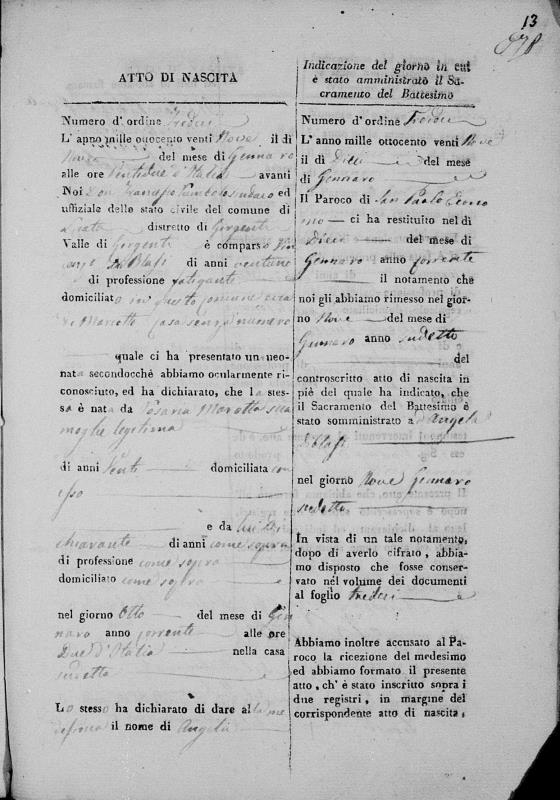 13
878
ATTO DI NASCITA
Numero d'ordine Tredici
L'anno mille ottocento venti Nove il dì
Nove del mese di Gennaro
alle ore Ventidue d'Italia avanti
Noi Don sindaco ed
uffiziale dello stato civile del comune di
distretto di Girgenti
Valle di Girgenti è comparso
di Blasi di anni ventuno
di professione fatigante
domiciliato in questo comune
di Marcotto casa senza numero
quale ci ha presentato una neo-
nata secondocchè abbiamo ocularmente ri-
conosciuto, ed ha dichiarato, che la stes-
sa è nata da Rosaria Marotta sua
moglie legitima
di anni Venti domiciliata con
esso
e da lui Di
chiarante di anni come sopra
di professione come sopra
domiciliato come sopra
nel giorno Otto del mese di Gen
naro anno corrente alle ore
Due d'Italia nella casa
sudetta
Lo stesso ha dichiarato di dare alla me
desima il nome di Angela
Indicazione del giorno in cui
è stato amministrato il Sa-
cramento del Battesimo
Numero d'ordine Tredici
L'anno mille ottocento venti Nove
il dì Dieci del mese
di Gennaro
Il Paroco di San Paolo
ci ha restituito nel dì
Dieci del mese di
Gennaro anno corrente
il notamento che
noi gli abbiamo rimesso nel gior-
no Nove del mese di
Gennaro anno sudetto
del
controscritto atto di nascita in
piè del quale ha indicato, che
il Sacramento del Battesimo è
stato somministrato a Angela
Di Blasi
nel giorno Nove Gennaro
sudetto
In vista di un tale notamento,
dopo di averlo cifrato, abbia-
mo disposto che fosse conser-
vato nel volume dei documenti
al foglio tredici
Abbiamo inoltre accusato al Pa-
roco la ricezione del medesimo
ed abbiamo formato il presente
atto, ch'è stato inscritto sopra i
due registri, in margine del
corrispondente atto di nascita,